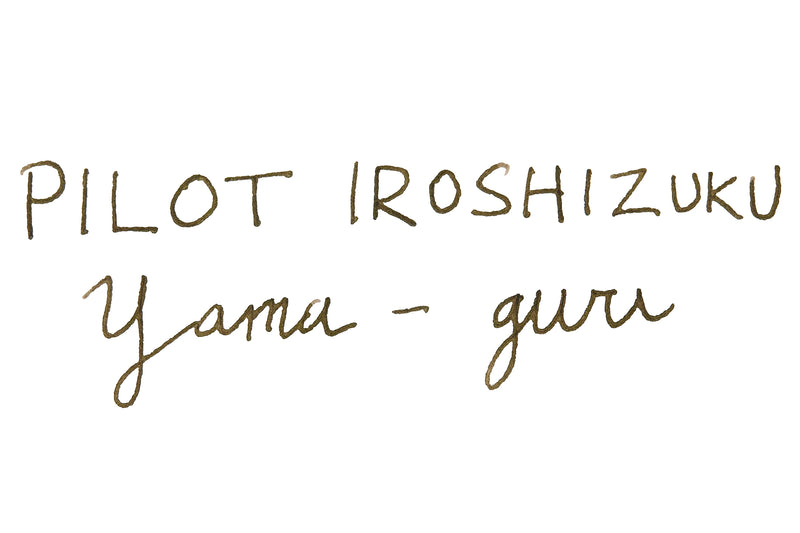 PILOT IROSHIZUKU
Yama - guri